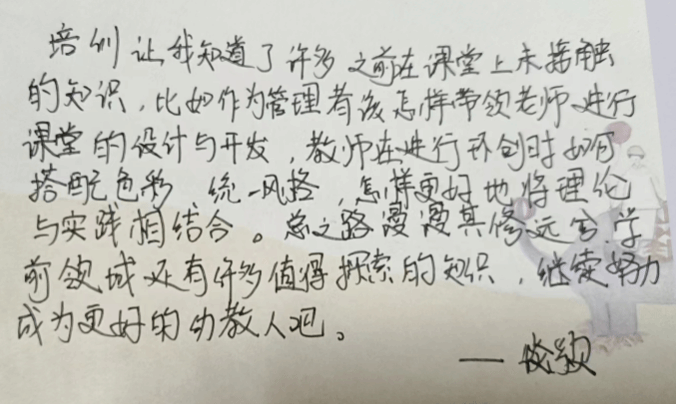 培训让我知道了许多之前在课堂上未接触
的知识，比如作为管理者该怎样带领老师进行
课堂的设计与开发，教师在进行环创时如何
搭配色彩 统一风格，怎样更好地将理论
与实践相结合。总之路漫漫其修远兮 学
前领域还有许多值得探索的知识，继续努力
成为更好的幼教人吧。
——